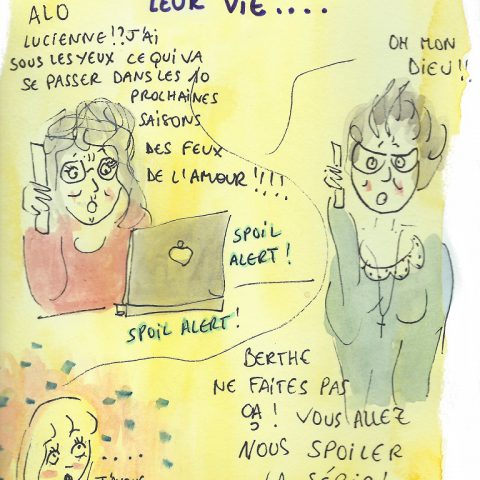 LEUR VIE....
ALO
LUCIENNE!?J'AI
SOUS LES YEUX CE QUI VA
SE PASSER DANS LES 10
PROCHAINES
SAISONS
DES FEUX
DE L'AMOUR!!!!
OH MON
DIEU!!
SPOIL
ALERT!
SPOIL ALERT!
BERTHE
NE FAITES PAS
ÇA! VOUS ALLEZ
NOUS SPOILER
LA SÉRIE!
....